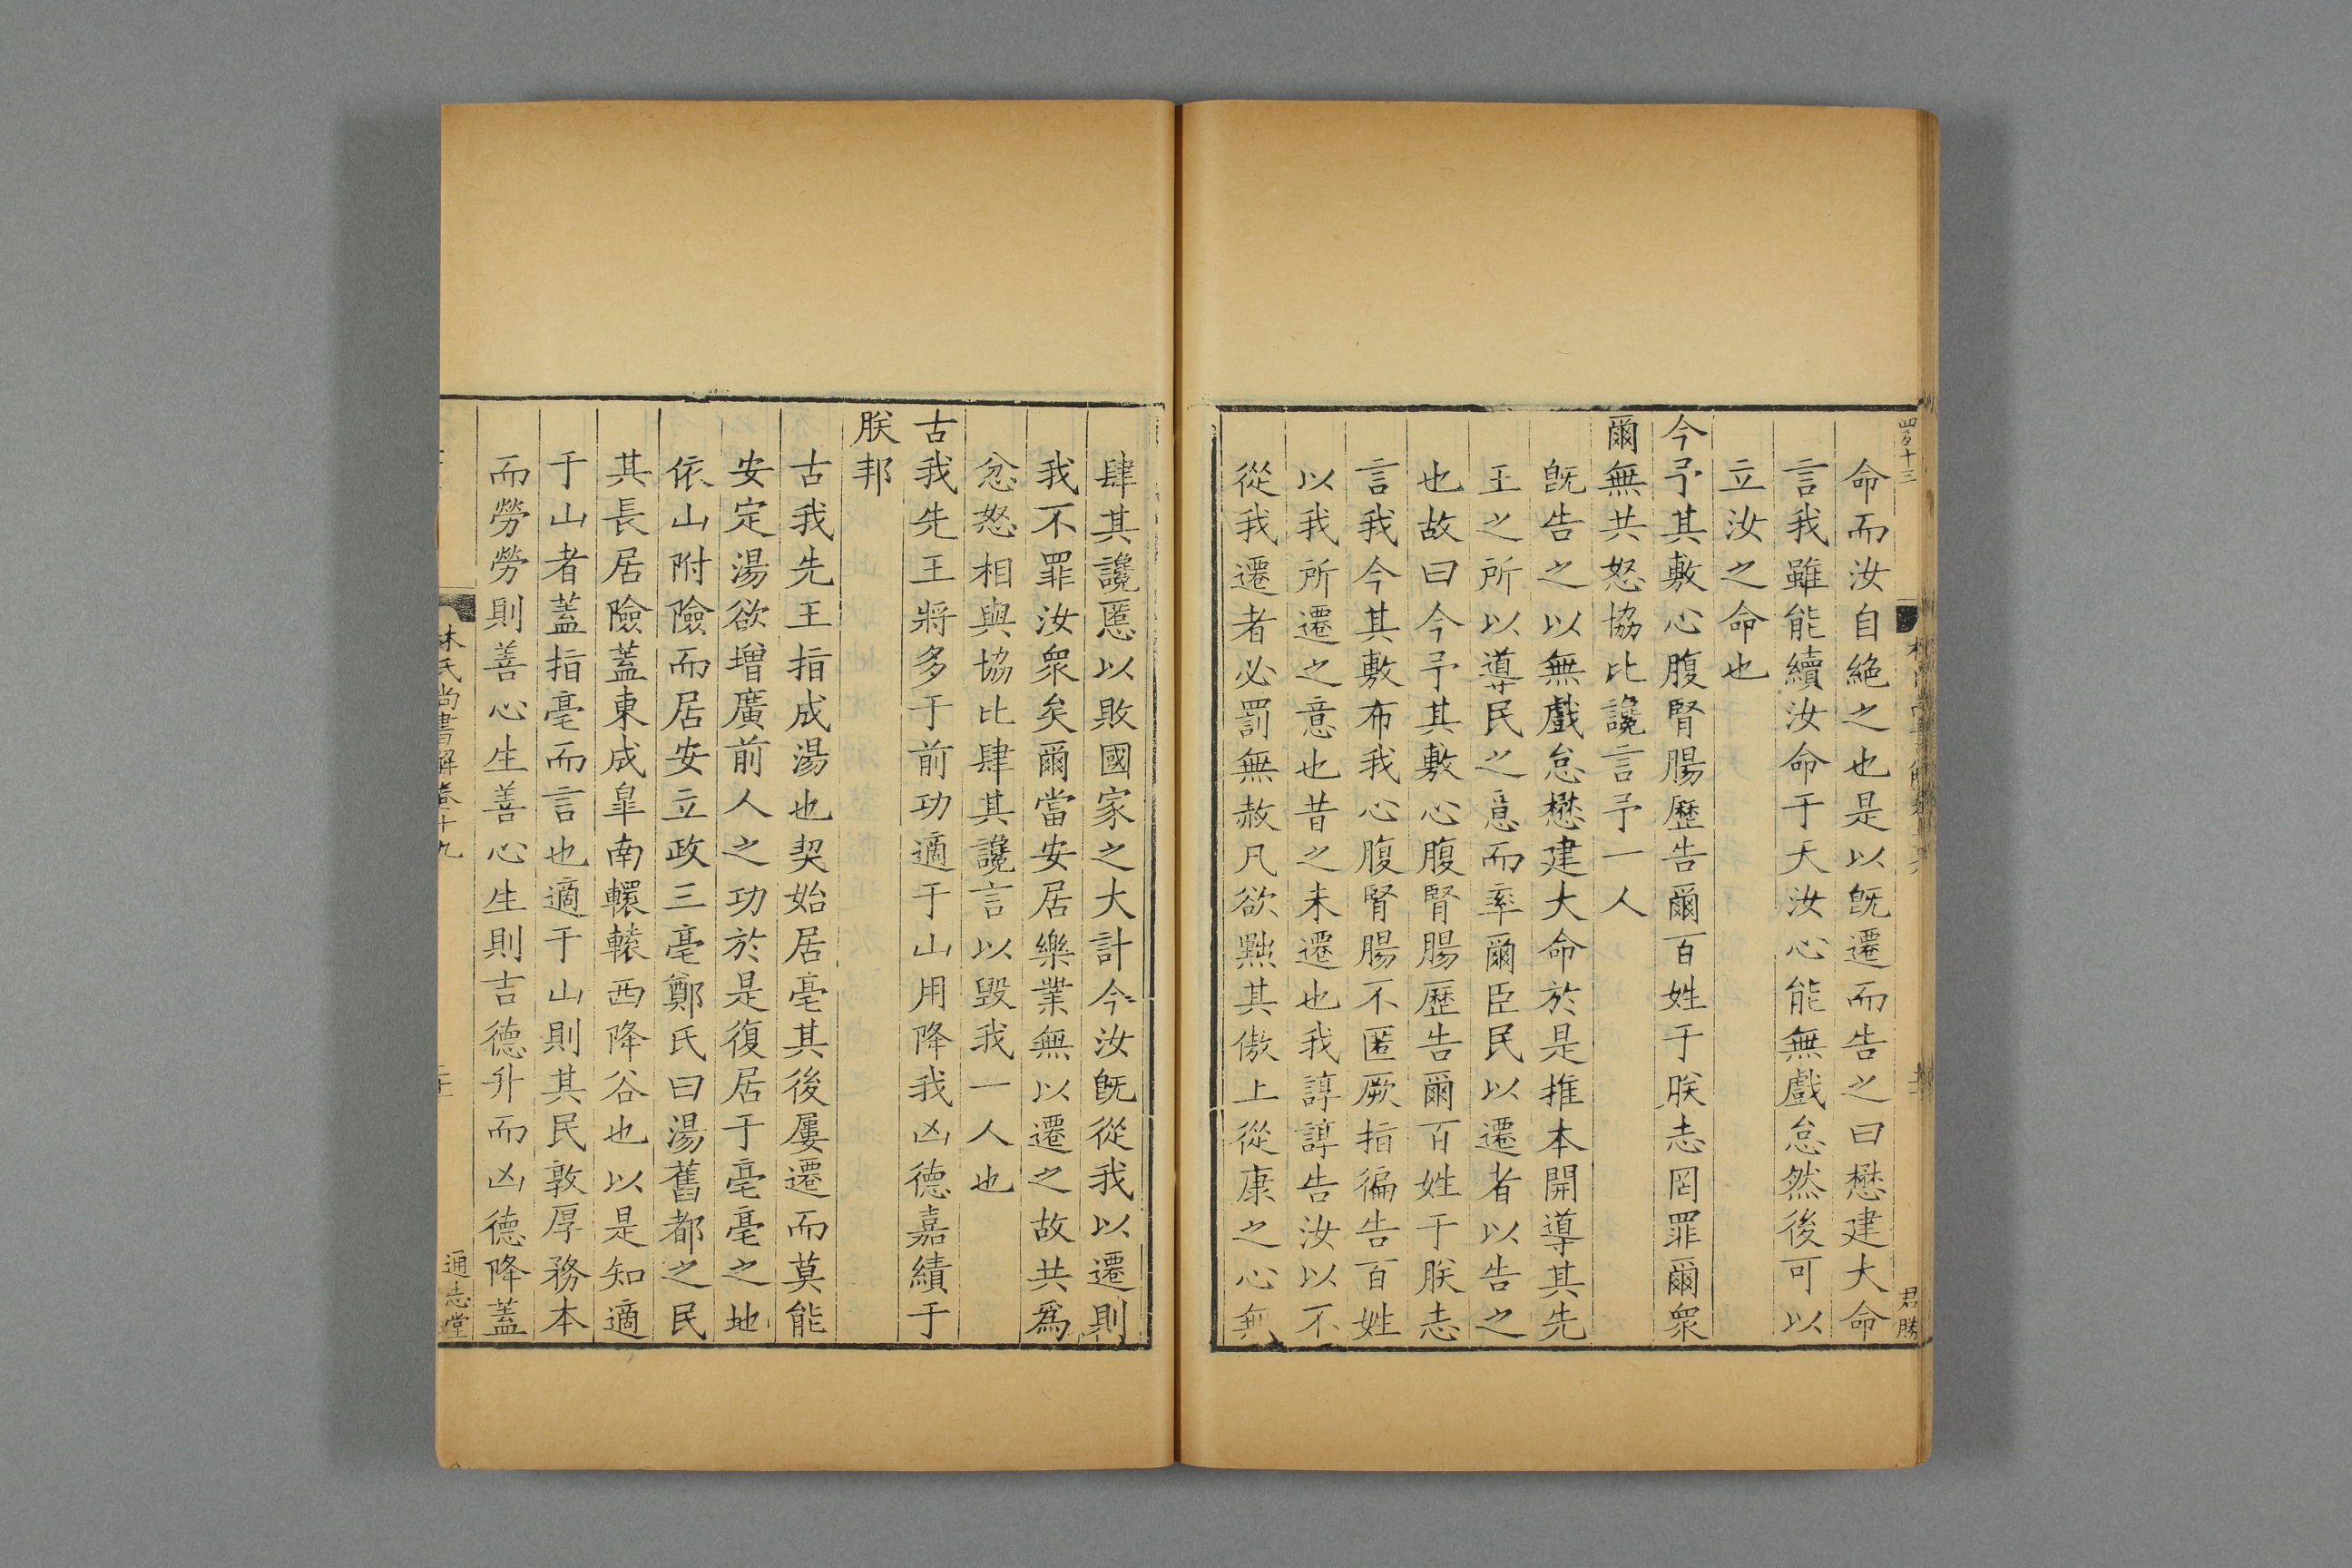 命而汝自絶之也是以旣遷而告之曰懋建大命
言我雖能續汝命于天汝心能無戲怠然後可以
立汝之命也
今予其敷心腹腎腸歷告爾百姓于朕志罔罪爾衆
爾無共怒協比讒言予一人
旣告之以無戲怠懋建大命於是推本開導其先
王之所以導民之意而率爾臣民以遷者以告之
也故曰今予其敷心腹腎腸歷告爾百姓于朕志
言我今其敷布我心腹腎腸不匿厥指徧告百姓
以我所遷之意也昔之未遷也我諄諄告汝以不
從我遷者必罰無赦凡欲黜其傲上從康之心無
肆其讒慝以敗國家之大計今汝旣從我以遷則
我不罪汝衆矣爾當安居樂業無以遷之故共爲
忿怒相與協比肆其讒言以毀我一人也
古我先王將多于前功適于山用降我凶德嘉績于
朕邦
古我先王指成湯也契始居亳其後屢遷而莫能
安定湯欲增廣前人之功於是復居于亳亳之地
依山附險而居安立政三亳鄭氏曰湯舊都之民
其長居險蓋東成皐南轘轅西降谷也以是知適
于山者蓋指亳而言也適于山則其民敦厚務本
而勞勞則善心生善心生則吉德升而凶德降蓋
林氏尚書解卷十九
通志堂
四百十三
君勝